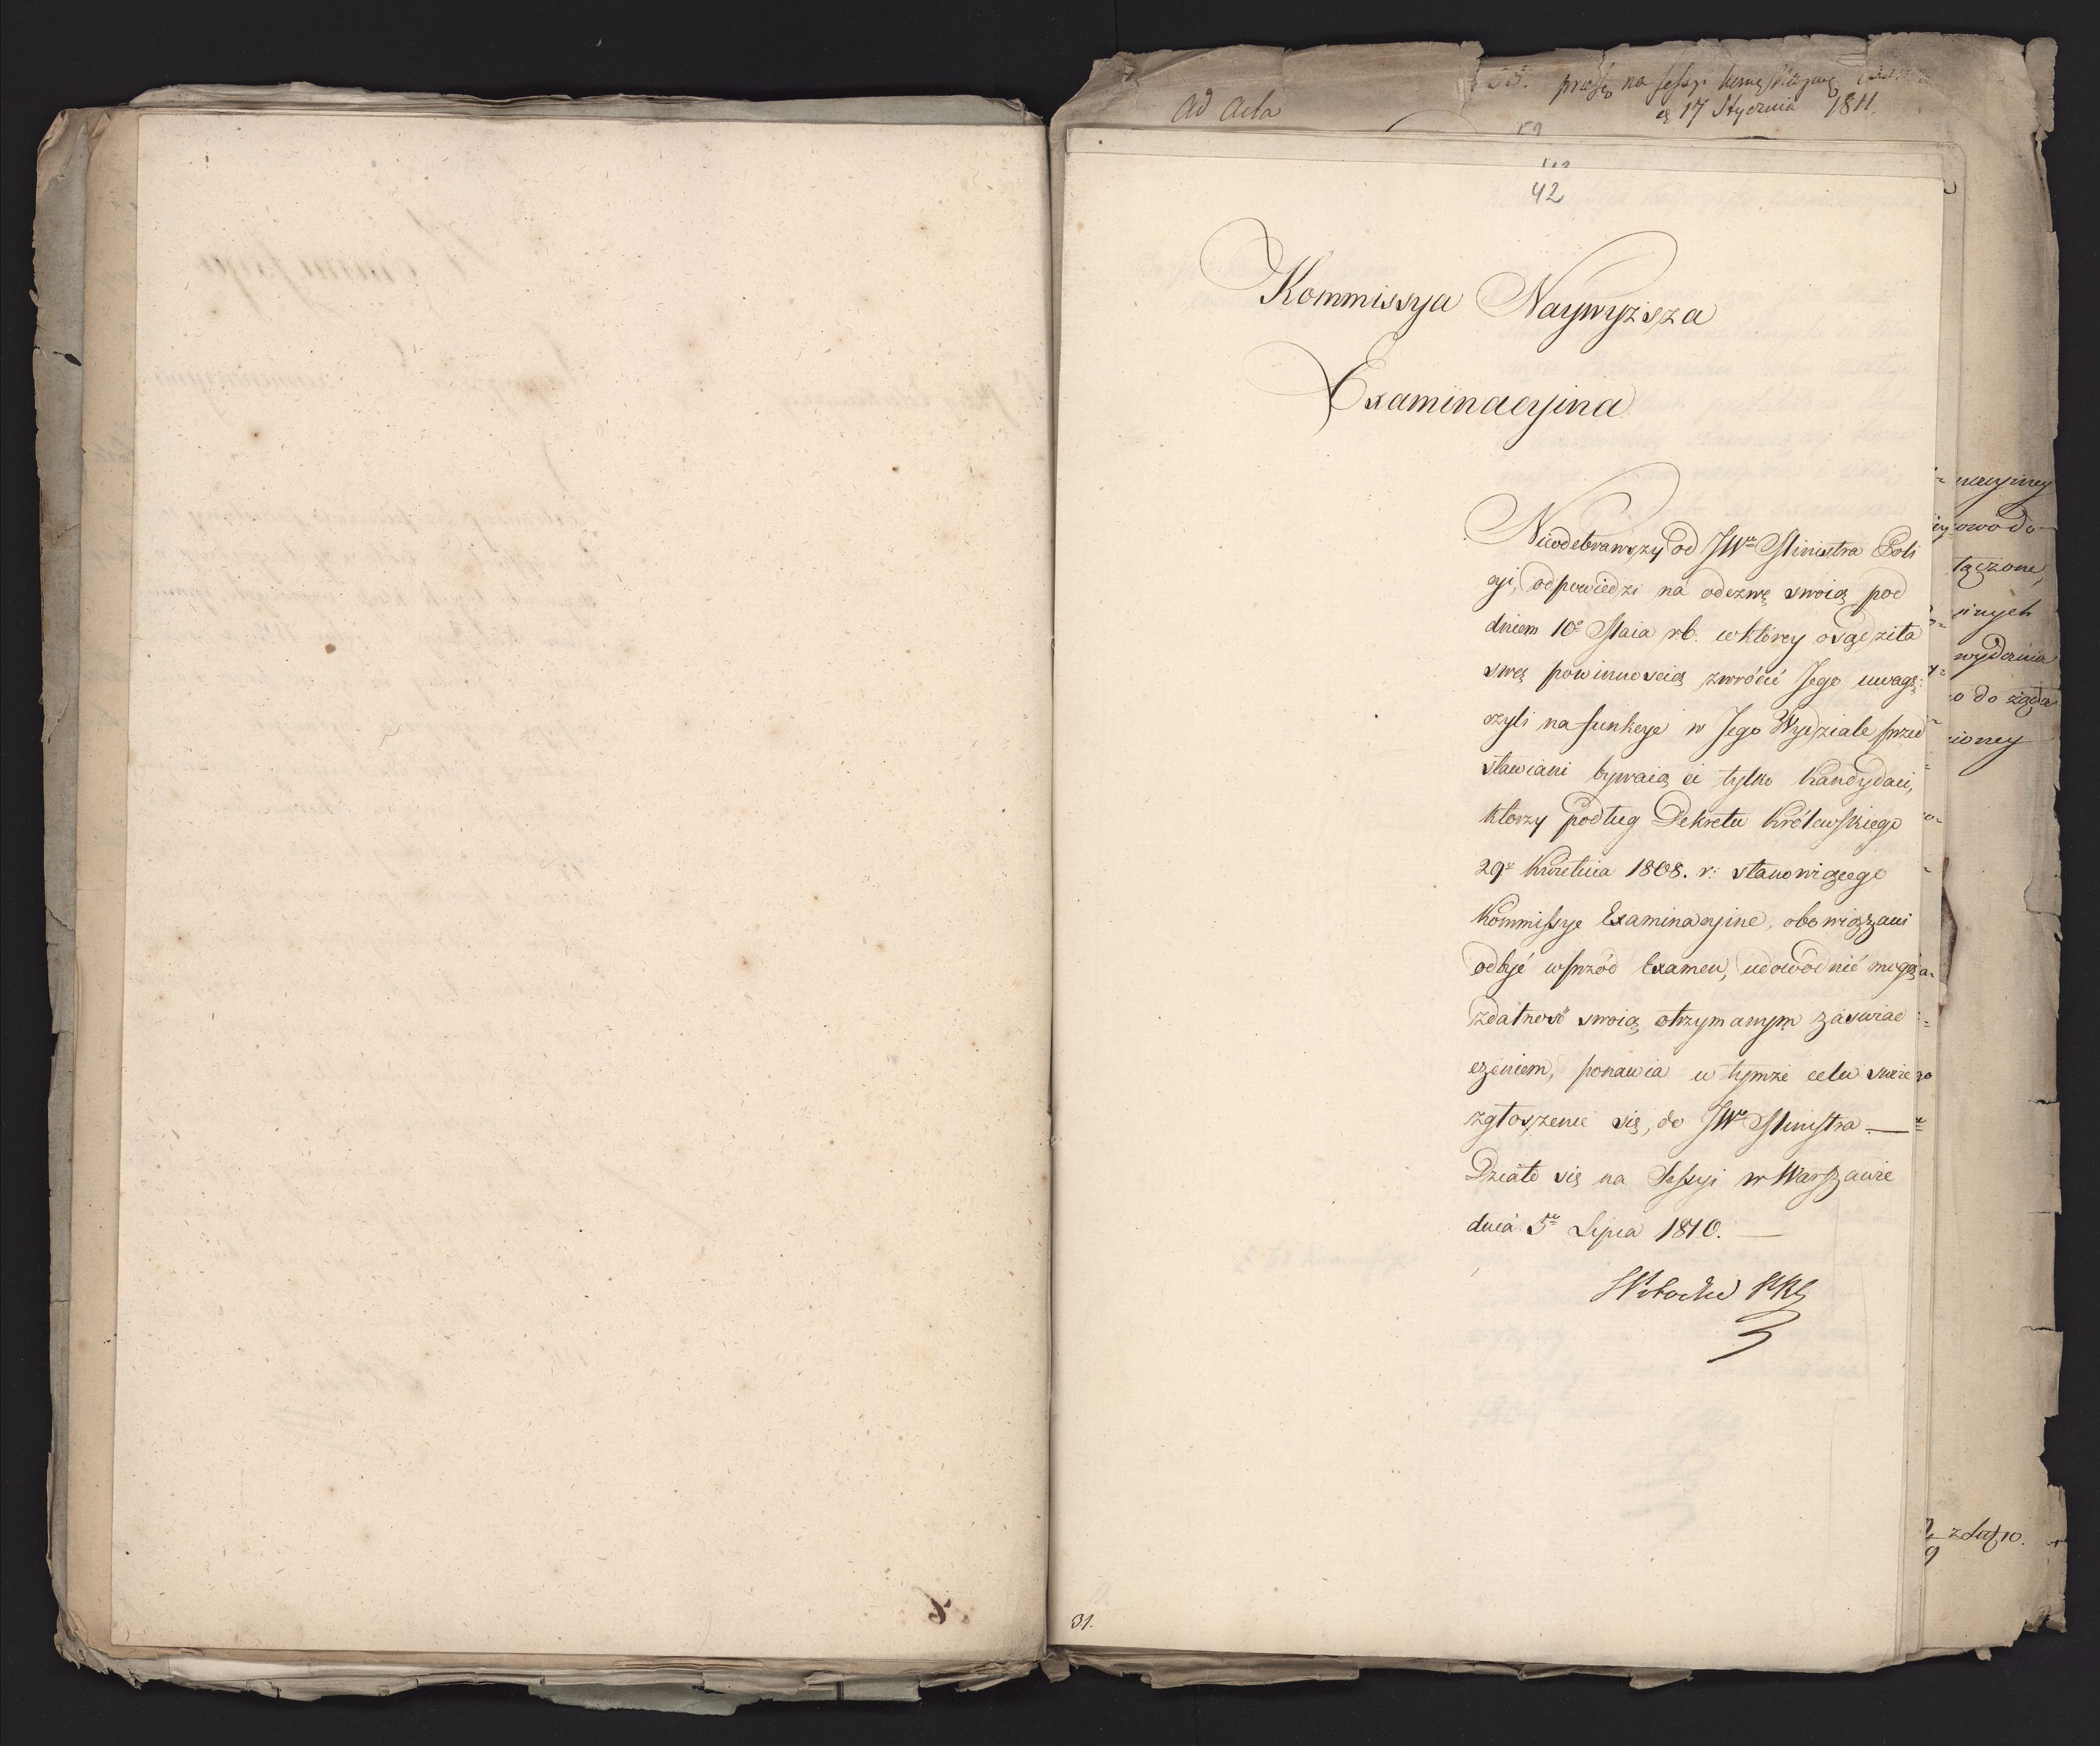 ad acta
na sessyi
17 Stycznia 1811
42
Kommissya Naywyższa
Examinacyina
Nieodebrawszy od JWo Ministra Poli
cyi, odpowiedzi na odezwę swoią pod
dniem 10o Maia rb. w którey osądziła
swą powinnością zwrócić Jego uwagę:
czyli na funkcye w Jego Wydziale przed
stawiani bywaią ci tylko Kandydaci,
ktorzy podług Dekretu Królewskiego
29o Kwietnia 1808. r: stanowiącego
Kommissye Examinacyine, obowiązani
odbyć wprzód Examen, udowodnić mogą
zdatność swoią otrzymanym zaswiad
czeniem, ponawia w tymże celu swoie
zgłoszenie się, do JWo Ministra. —
Działo się na Sessyi w Warszawie
dnia 5o Lipca 1810. —
31.
nacyiney
łączone,
wydania
o do żąda